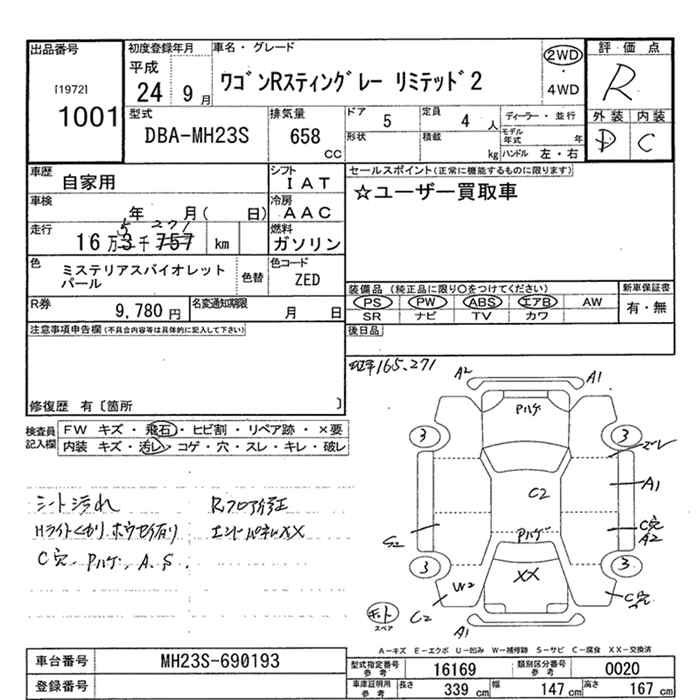 出品番号
[1972]
1001
初度登録年月
平成
24 9月
車名・グレード
ワゴンRスティングレー リミテッド2
2WD
・
4WD
評価点
R
外装 内装
D C
型式
DBA-MH23S
排気量
658
cc
ドア 5
定員 4 人
ディーラー・並行
形状
積載 kg
モデル年式 年
ハンドル 左・右
車歴
自家用
シフト
IAT
車検
年 月( 日)
冷房
AAC
走行
5 271
16万3千757 km
燃料
ガソリン
色
ミステリアスバイオレット
パール
色替
色コード
ZED
R券
9,780 円
名変通知期限
月 日
セールスポイント(正常に機能するものに限ります)
☆ユーザー買取車
装備品 (純正品に限り○をつけてください)
新車保証書
PS PW ABS エアB AW
有・無
SR ナビ TV カワ
後日品
注意事項申告欄(不具合内容等は具体的に記入して下さい)
修復歴 有〔箇所 〕
検査員
記入欄
FW キズ・飛石・ヒビ割・リペア跡・×要
内装 キズ・汚レ・コゲ・穴・スレ・キレ・破レ
165,271
シート汚れ
Rフロア修正
Hライトくもり
C穴、Pハゲ、A、S
XX
A2
A1
Pハゲ
3
3
A1
C2
C穴
A2
S2
Pハゲ
3
3
XX
W2
C2
C穴
スペア
A1
A-キズ E-エクボ U-凹み W-補修跡 S-サビ C-腐食 XX-交換済
車台番号
MH23S-690193
登録番号
型式指定番号
参考
16169
類別区分番号
参考
0020
車庫証明用
参考
長さ 339 cm
幅 147 cm
高さ 167 cm